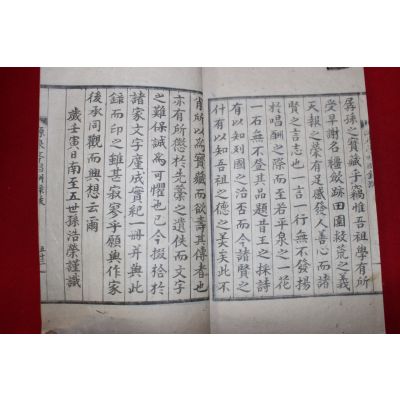 孱孫之寶藏乎竊惟吾祖學有所
受早謝名韁斂跡田園救荒之義
天報之榮有足感發人善心而諸
賢之言志也一言一行無不發揚
於唱酬之際而至若平泉之一花
一石無不登其品題昔王之採詩
有以知列國之治否而今諸賢之
什有以知吾祖之德之美矣此不
肖所以為寶藏而欲壽其傳者也
亦有所懲於先藁之遺佚而文字
之難保誠為可懼也已今掇拾於
諸家文字廑成實紀一冊并與此
錄而印之雖甚寂寥乎願與作家
後承同觀而興想云爾
歲壬寅日南至五世孫浩榮謹識